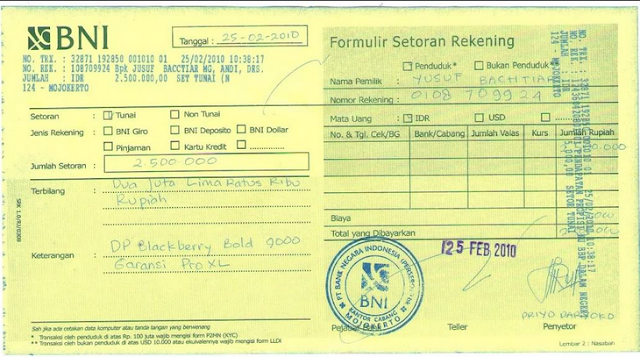 BNI
Tanggal : 25-02-2010
NO. TRX. : 32871 192850 001010 01 25/02/2010 10:38:17
NO. REK. : 108709924 Bpk JUSUF BACCTIAR MG, ANDI, DRS.
JUMLAH : IDR 2.500.000,00 SET TUNAI (N
124 - MOJOKERTO
Setoran : Tunai Non Tunai
Jenis Rekening : BNI Giro BNI Deposito BNI Dollar
Pinjaman Kartu Kredit
Jumlah Setoran : 2.500.000
Terbilang : Dua Juta Lima Ratus Ribu
Rupiah
Keterangan : DP Blackberry Bold 9000
Garansi Pro XL
Sah jika ada cetakan data komputer atau tanda tangan yang berwenang
* Transaksi oleh penduduk di atas Rp. 100 juta wajib mengisi form P2MN (KYC)
** Transaksi oleh bukan penduduk di atas USD 10.000 atau ekuivalennya wajib mengisi form LLD
Formulir Setoran Rekening
Penduduk* Bukan Penduduk*
Nama Pemilik : YUSUF BACHTIAR
Nomor Rekening : 0108 709924
Mata Uang : IDR USD
No. & Tgl. Cek/BG Bank/Cabang Jumlah Valas Kurs Jumlah Rupiah
Biaya
Total yang Dibayarkan
PT BANK NEGARA INDONESIA (PERSERO)
BNI
KANTOR CABANG
MOJOKERTO
25 FEB 2010
Teller Penyetor
Lembar 2 : Nasabah